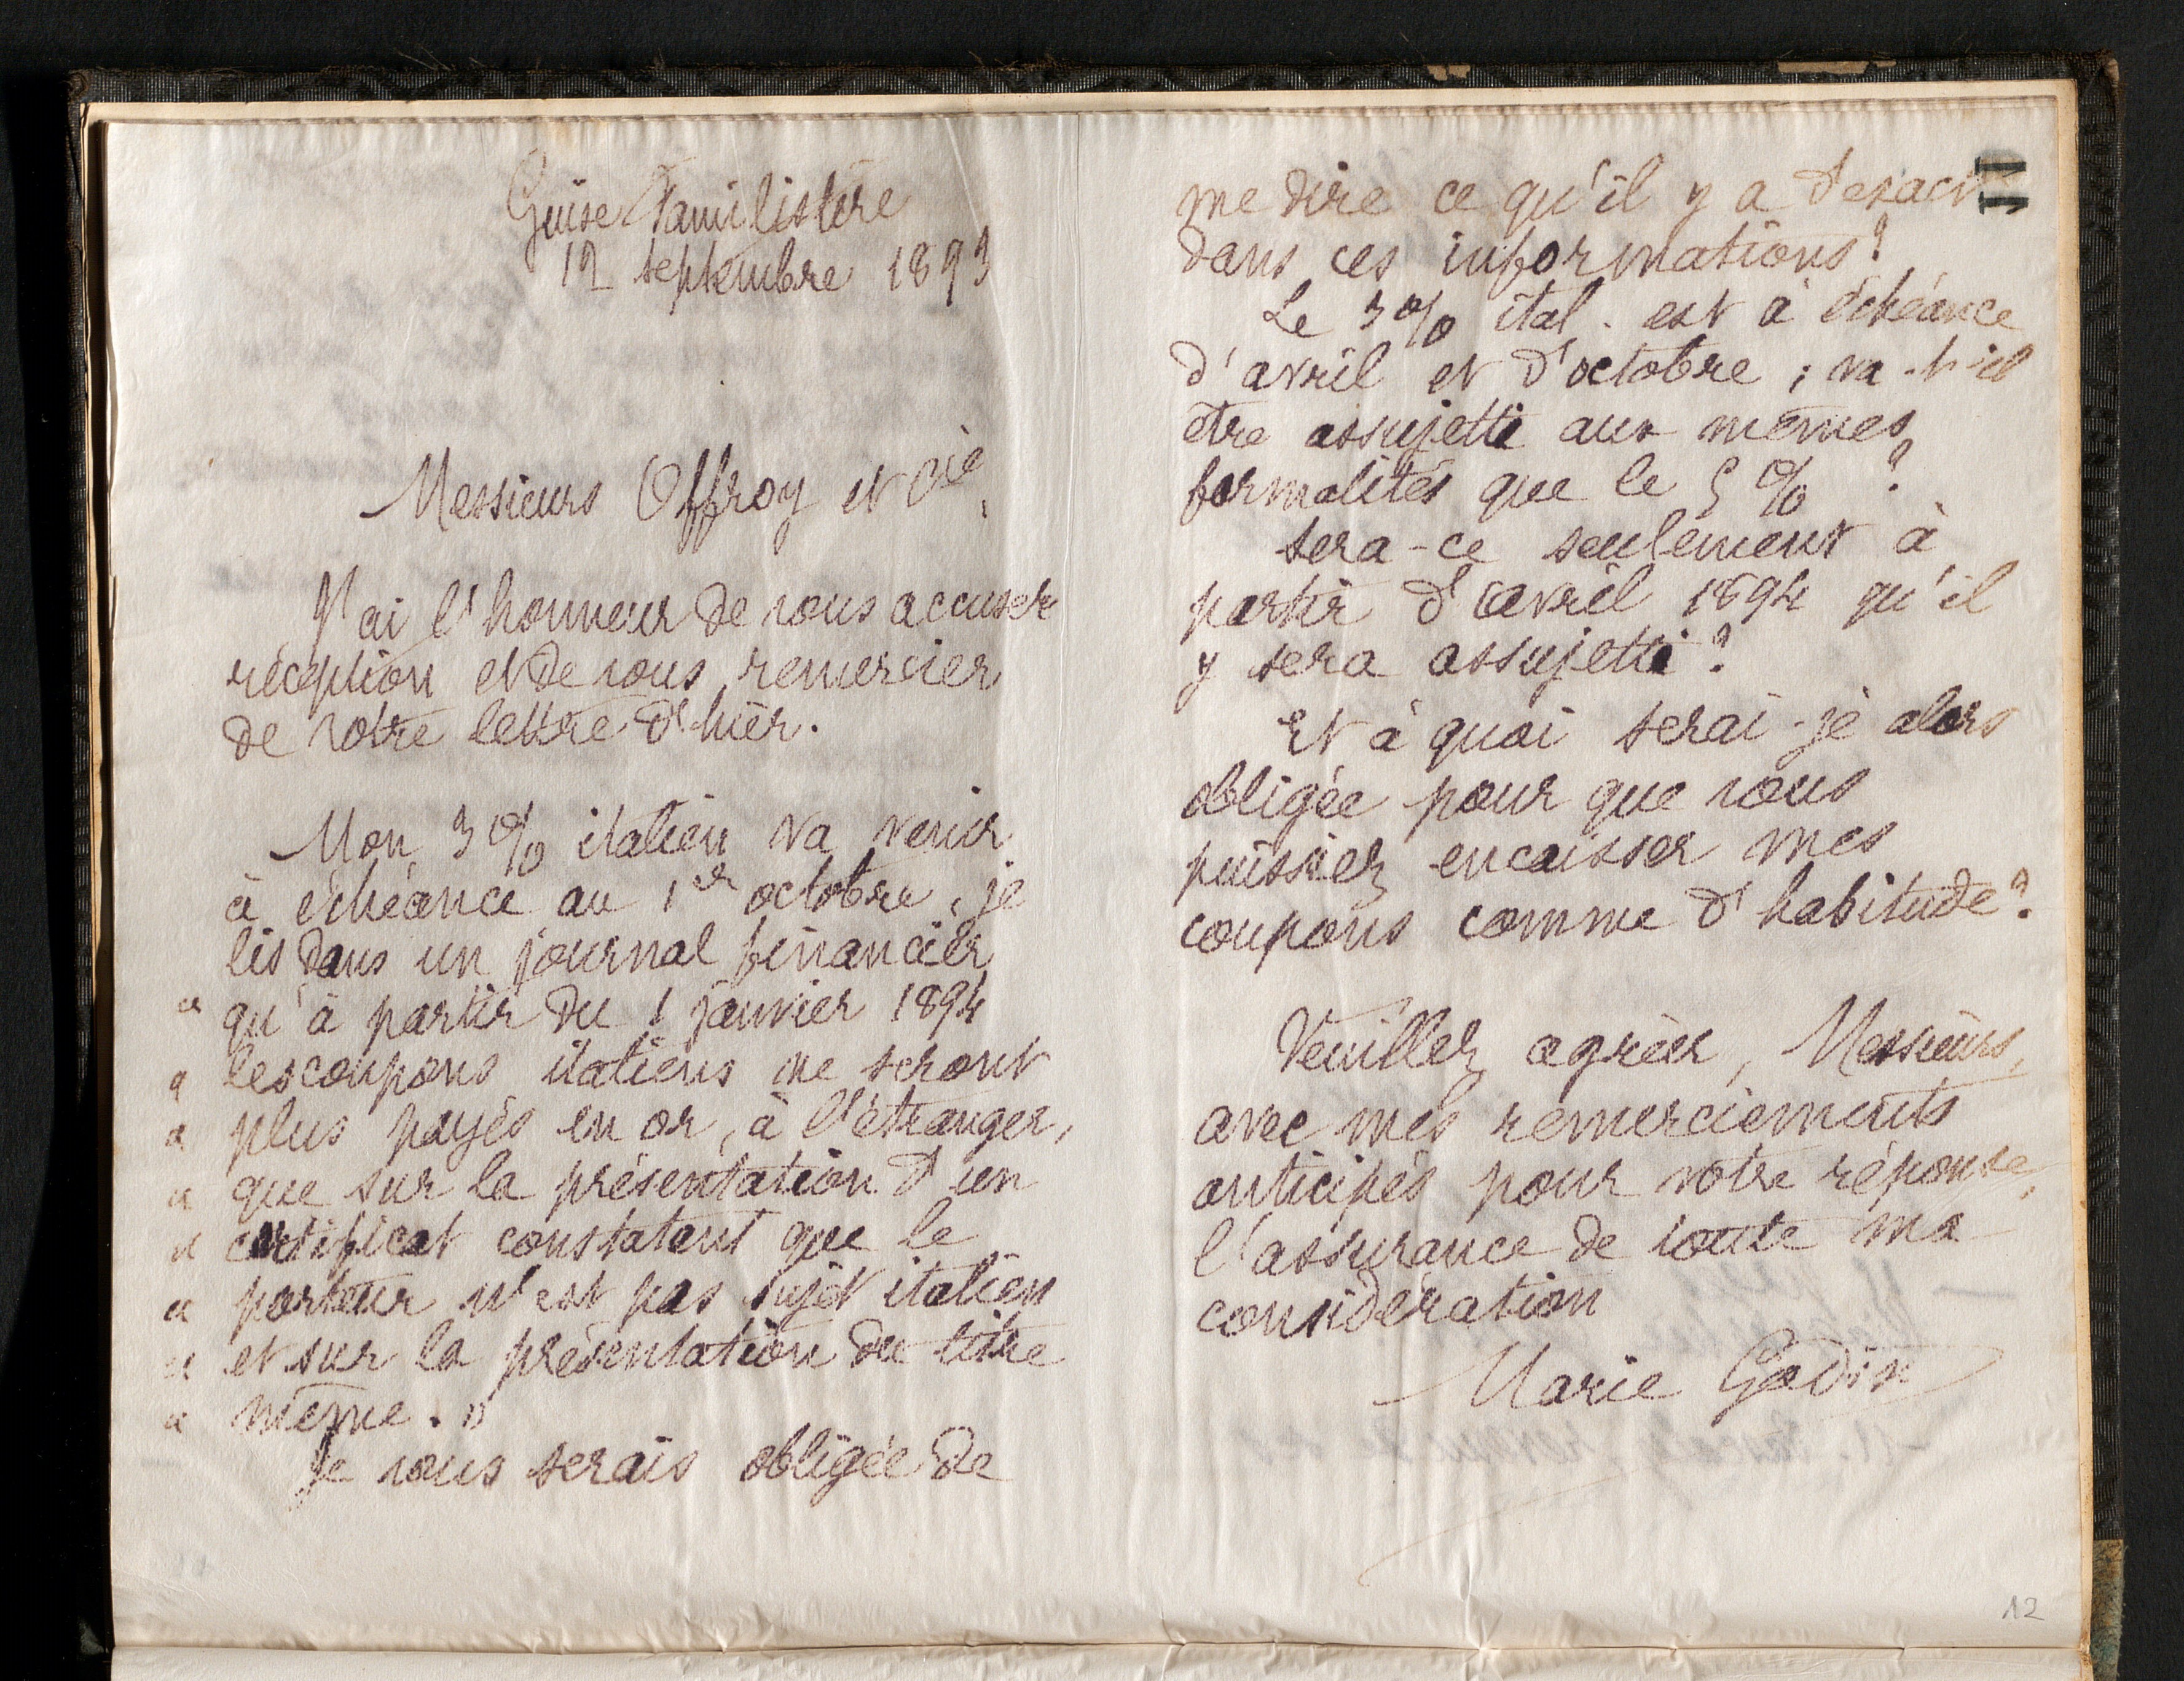 Guise Familistère
12 septembre 1893
Messieurs Offroy et Cie,
J'ai l'honneur de vous accuser
réception et de vous remercier
de votre lettre d'hier.
Mon 3% italien va venir
à échéance au 1er octobre, je
lis dans un journal financier
« qu'à partir du 1 janvier 1894
« les coupons italiens ne seront
« plus payés en or, à l'étranger,
« que sur la présentation d'un
« certificat constatant que le
« porteur n'est pas sujet italien
« et sur la présentation du titre
« même. »
Je vous serais obligée de
11
me dire ce qu'il y a d'exact
dans ces informations?
Le 3% ital. est à échéance
d'avril et d'octobre; va-t-il
être assujetti aux mêmes
formalités que le 5%?
sera-ce seulement à
partir d'avril 1894 qu'il
y sera assujetti?
Et à quoi serai-je alors
obligée pour que vous
puissiez encaisser mes
coupons comme d'habitude?
Veuillez agréer, Messieurs,
avec mes remerciements
anticipés pour votre réponse,
l'assurance de toute ma
considération
Marie Godin
12